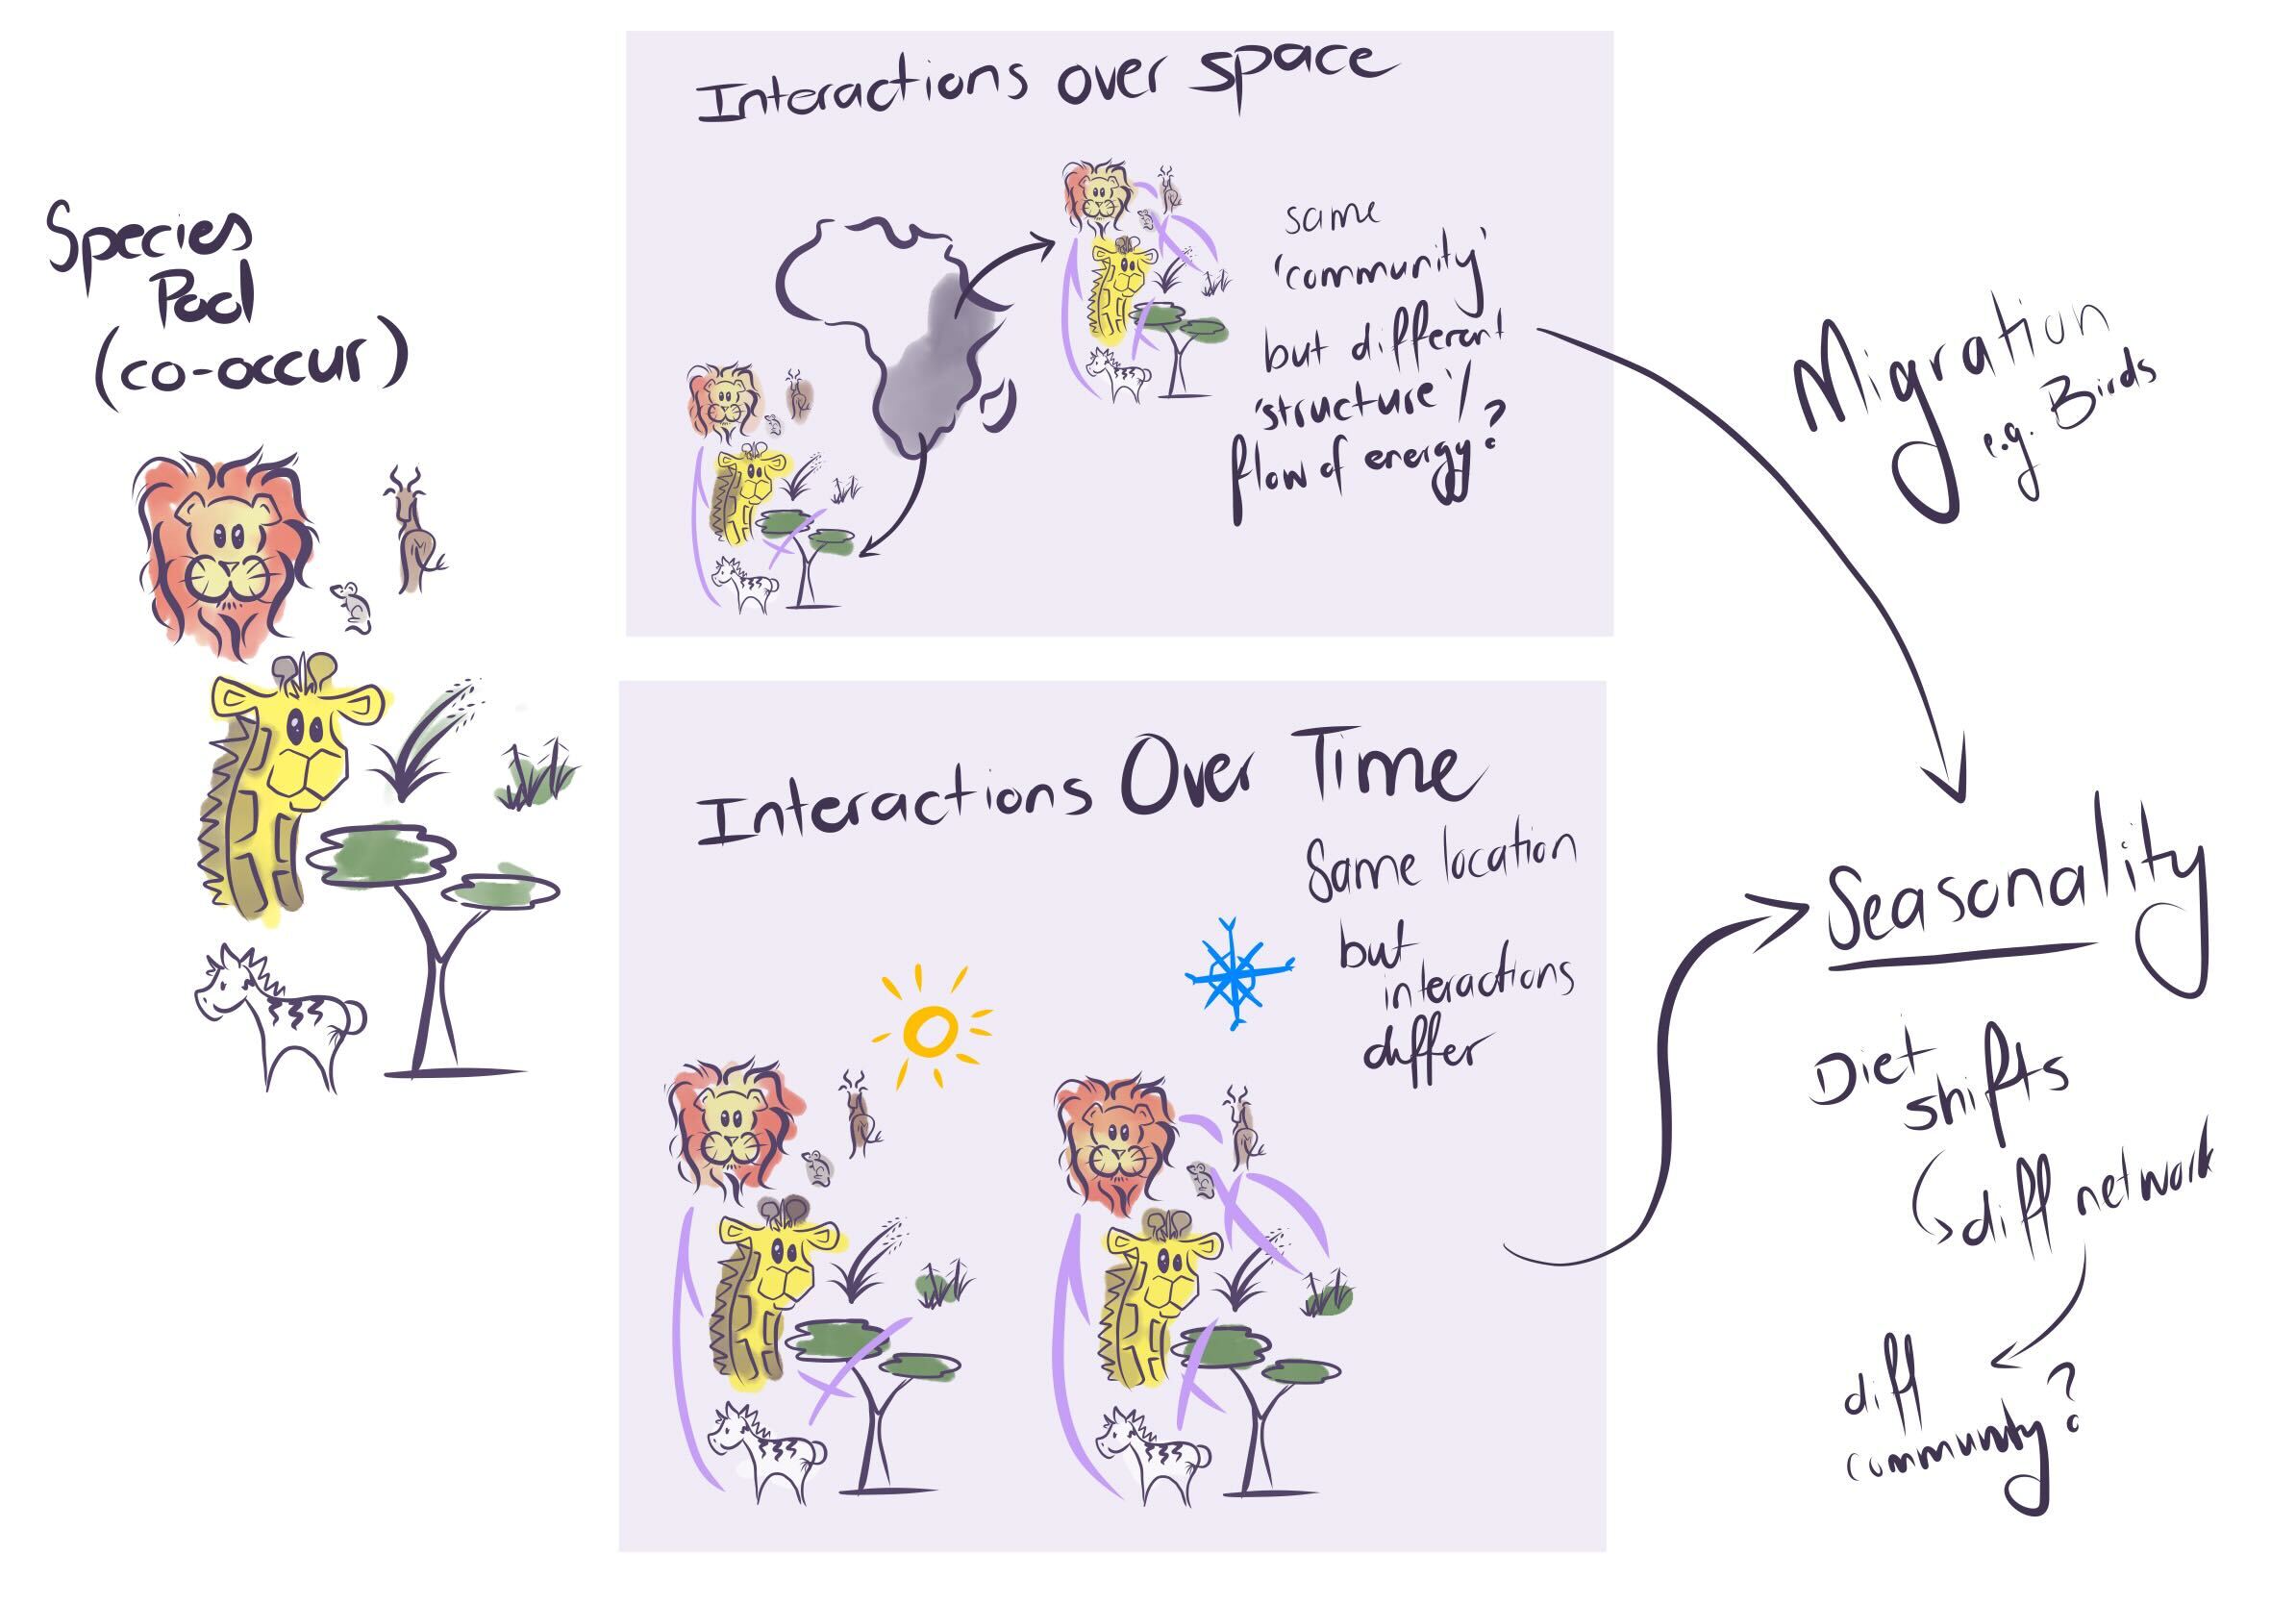 Species
Pool
(co-occur)
Interactions over space
same
'community'
but different
'structure'/
flow of energy?
Migration
e.g. Birds
Interactions Over Time
Same location
but
interactions
differ
Seasonality
Diet
shifts
diff network
diff
community?